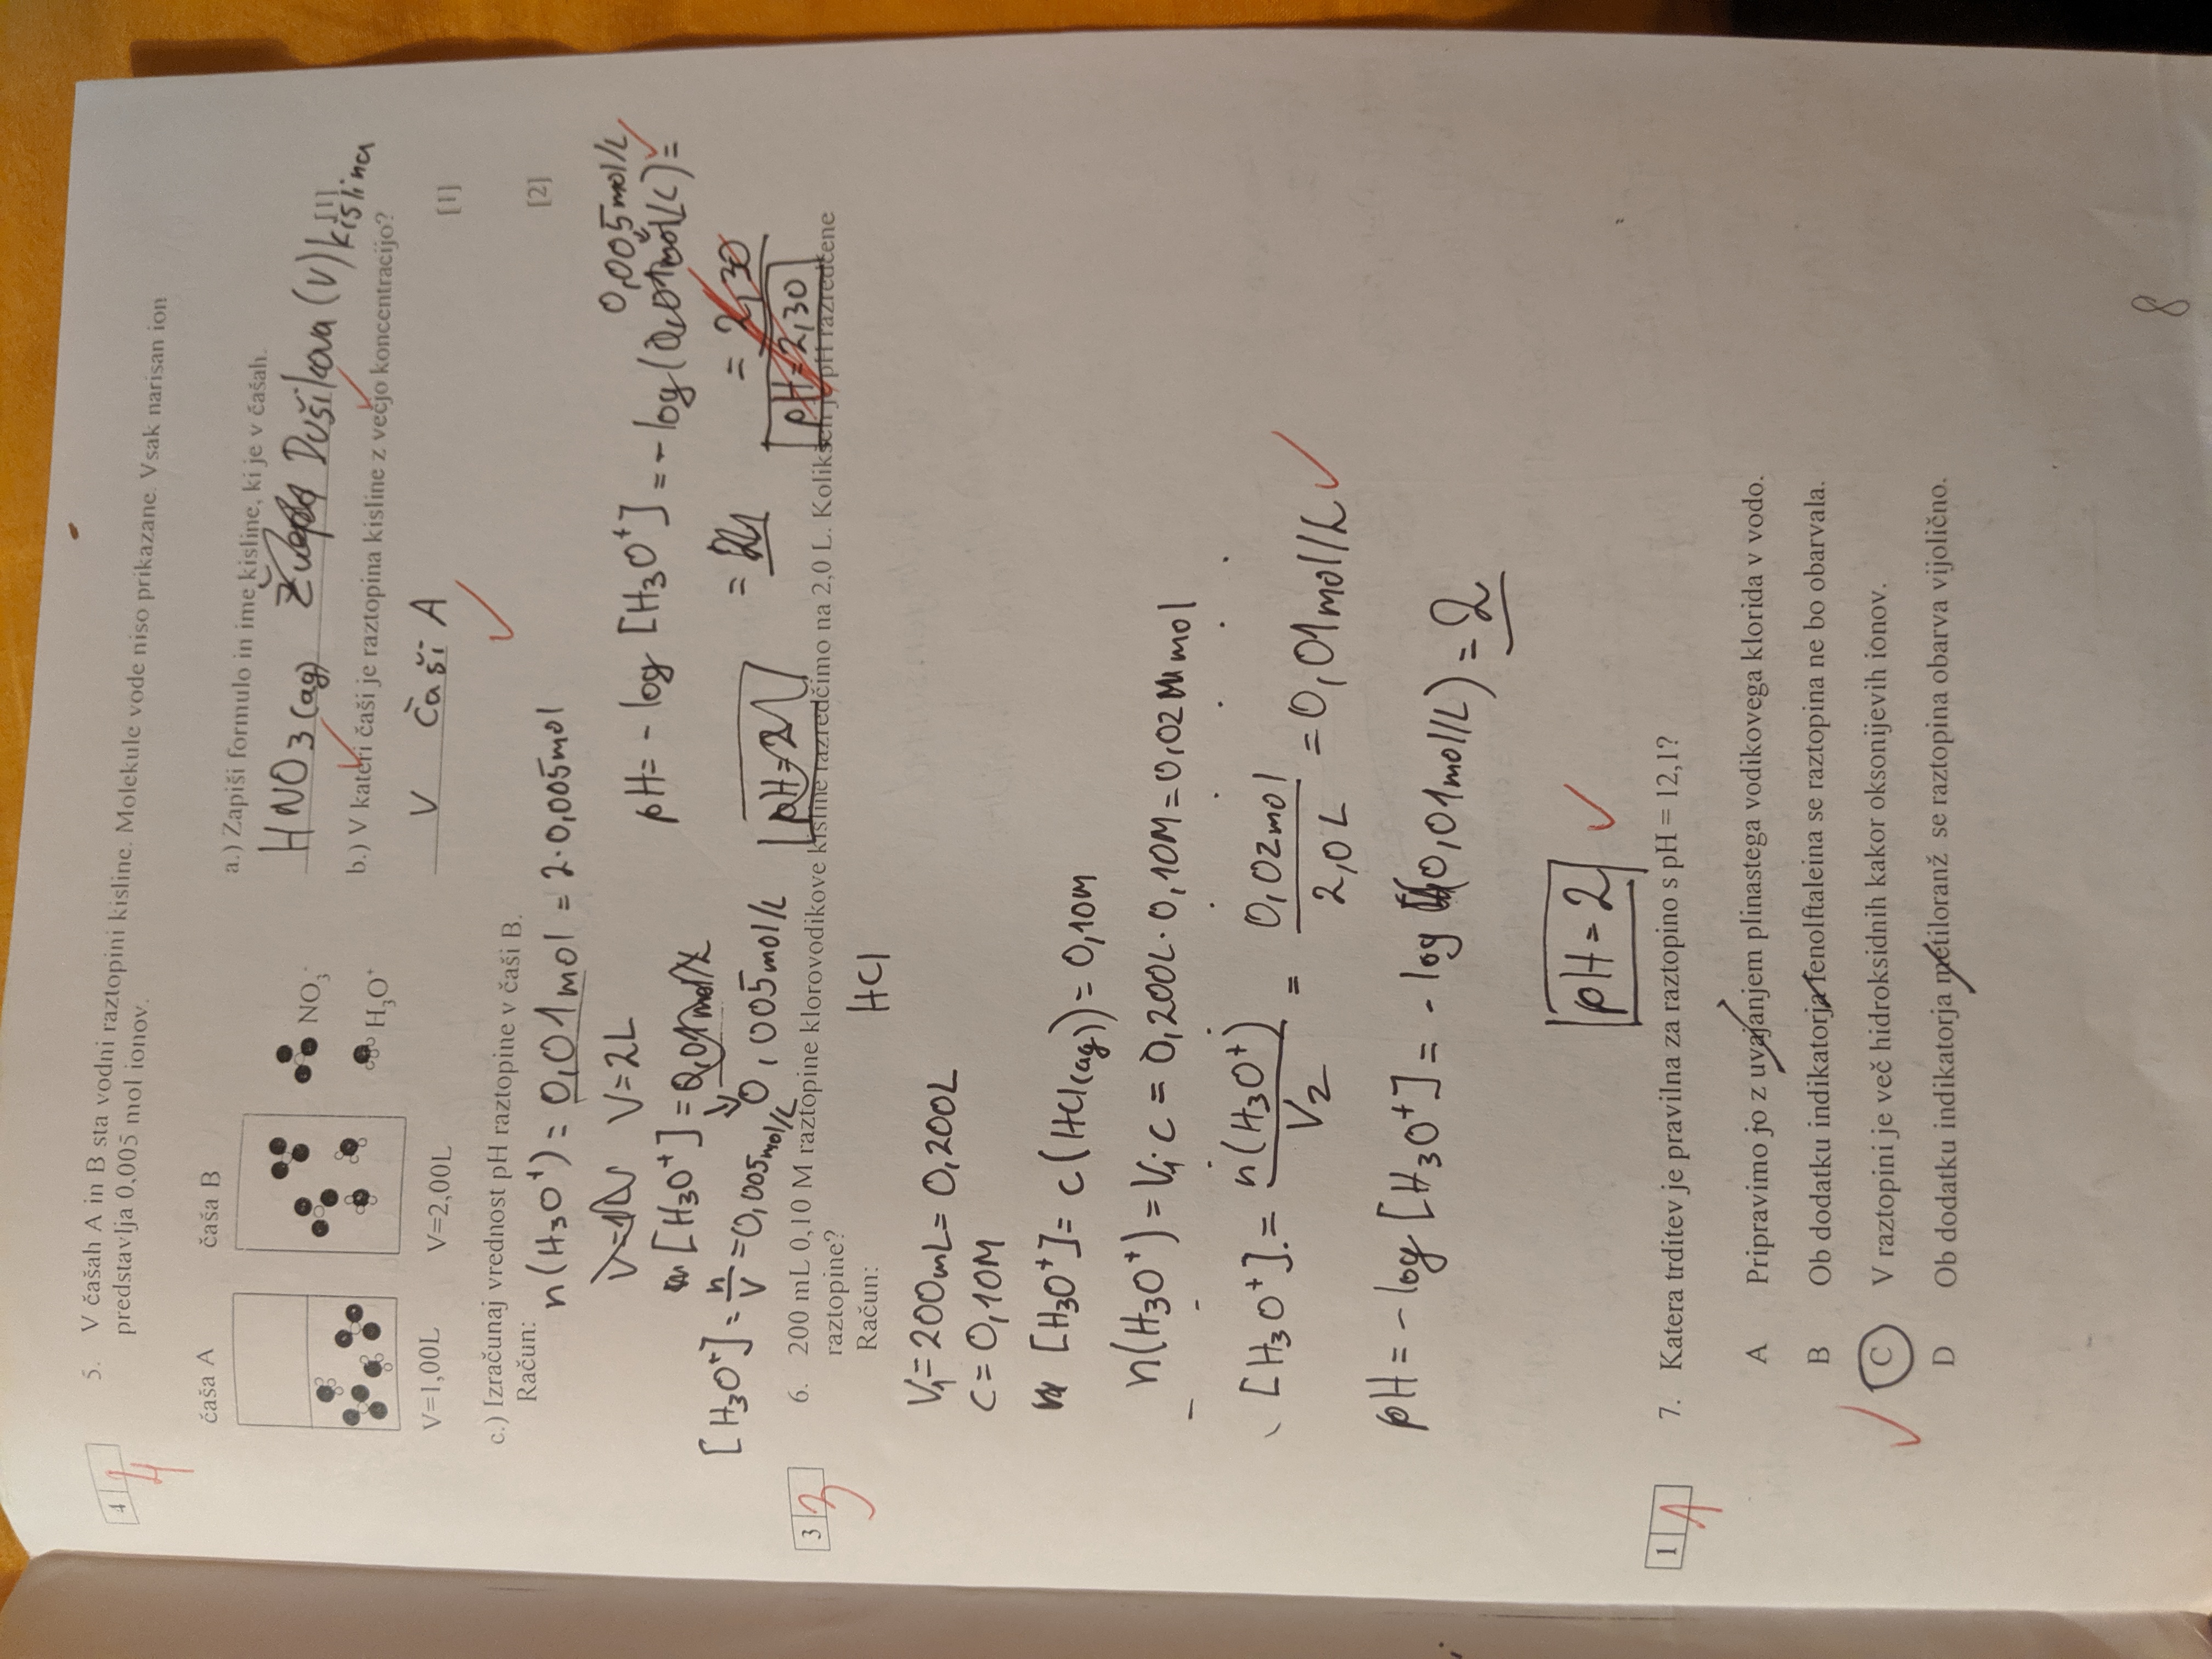 4 4
5. V čašah A in B sta vodni raztopini kisline. Molekule vode niso prikazane. Vsak narisan ion
predstavlja 0,005 mol ionov.
čaša A čaša B
NO₃⁻
H₃O⁺
V=1,00L V=2,00L
a.) Zapiši formulo in ime kisline, ki je v čašah.
HNO₃(ag) Dušikova (V) kislina
[1]
b.) V kateri čaši je raztopina kisline z večjo koncentracijo?
V čaši A
[1]
c.) Izračunaj vrednost pH raztopine v čaši B.
[2]
Račun:
n(H₃O⁺) = 0,01mol = 2·0,005mol
V=1L V=2L
[H₃O⁺] = 0,01mol/L
0,005mol/L
[H₃O⁺] = n/V = 0,005mol/L
0,005mol/L
pH = -log [H₃O⁺] = -log(0,01mol/L) =
= 2,30
pH=2
pH=2,30
3 3
6. 200 mL 0,10 M raztopine klorovodikove kisline razredčimo na 2,0 L. Kolikšen je pH razredčene
raztopine?
Račun:
HCl
V₁ = 200mL = 0,200L
c = 0,10M
[H₃O⁺] = c(HCl(ag)) = 0,10M
n(H₃O⁺) = V₁·c = 0,200L·0,10M = 0,02 mol
[H₃O⁺] = n(H₃O⁺)/V₂ = 0,02mol/2,0L = 0,01mol/L
pH = -log [H₃O⁺] = -log (0,01mol/L) = 2
pH=2
1 1
7. Katera trditev je pravilna za raztopino s pH = 12,1?
A Pripravimo jo z uvajanjem plinastega vodikovega klorida v vodo.
B Ob dodatku indikatorja fenolftaleina se raztopina ne bo obarvala.
C V raztopini je več hidroksidnih kakor oksonijevih ionov.
D Ob dodatku indikatorja metiloranž se raztopina obarva vijolično.
8